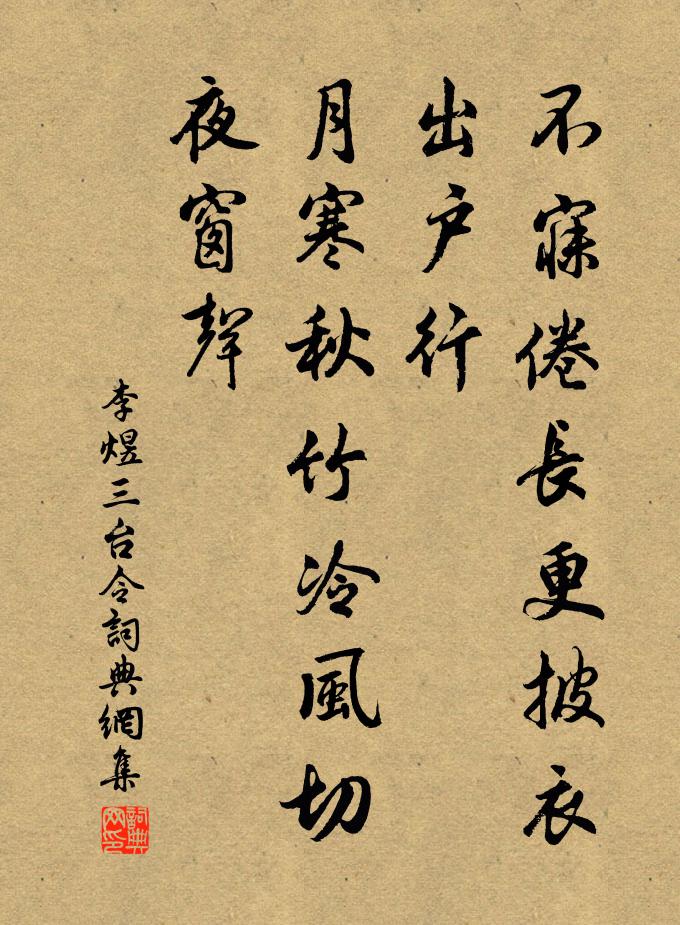 不寐倦長更披衣
出户行
月寒秋竹冷風切
夜窗聲
李煜三台令詞典網集
詞典網印